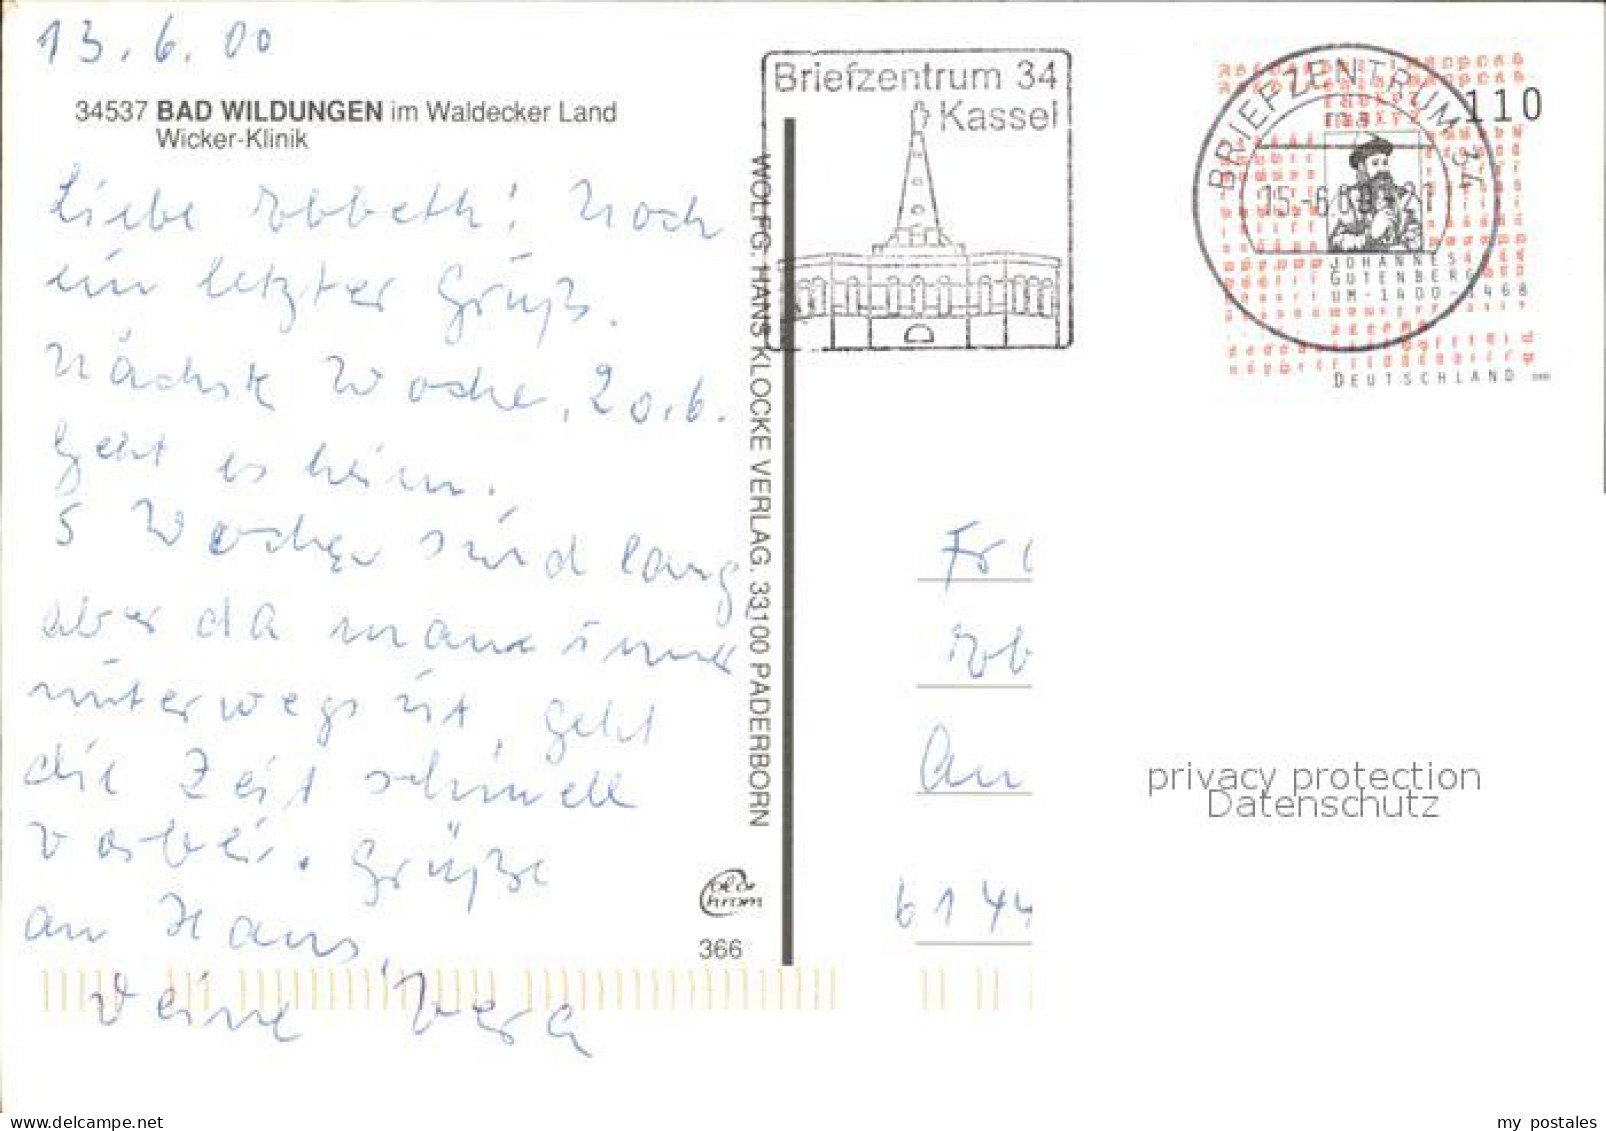 13.6.00
34537 BAD WILDUNGEN im Waldecker Land
Wicker-Klinik
Liebe Ebbeth! Noch
ein letzter Grüß.
Nächste Woche, 20.6.
geht es heim.
5 Wochen sind lang,
aber da man immer
unterwegs ist, geht
die Zeit schnell
vorbei. Grüße
an Hans,
Deine Vera
WOLFG. HANS KLOCKE VERLAG. 33100 PADERBORN
color
chrom
366
Briefzentrum 34
Kassel
BRIEFZENTRUM 34
110
JOHANNES
GUTENBERG
UM-1400-1468
DEUTSCHLAND
Fr
An
6144
privacy protection
Datenschutz
my postales